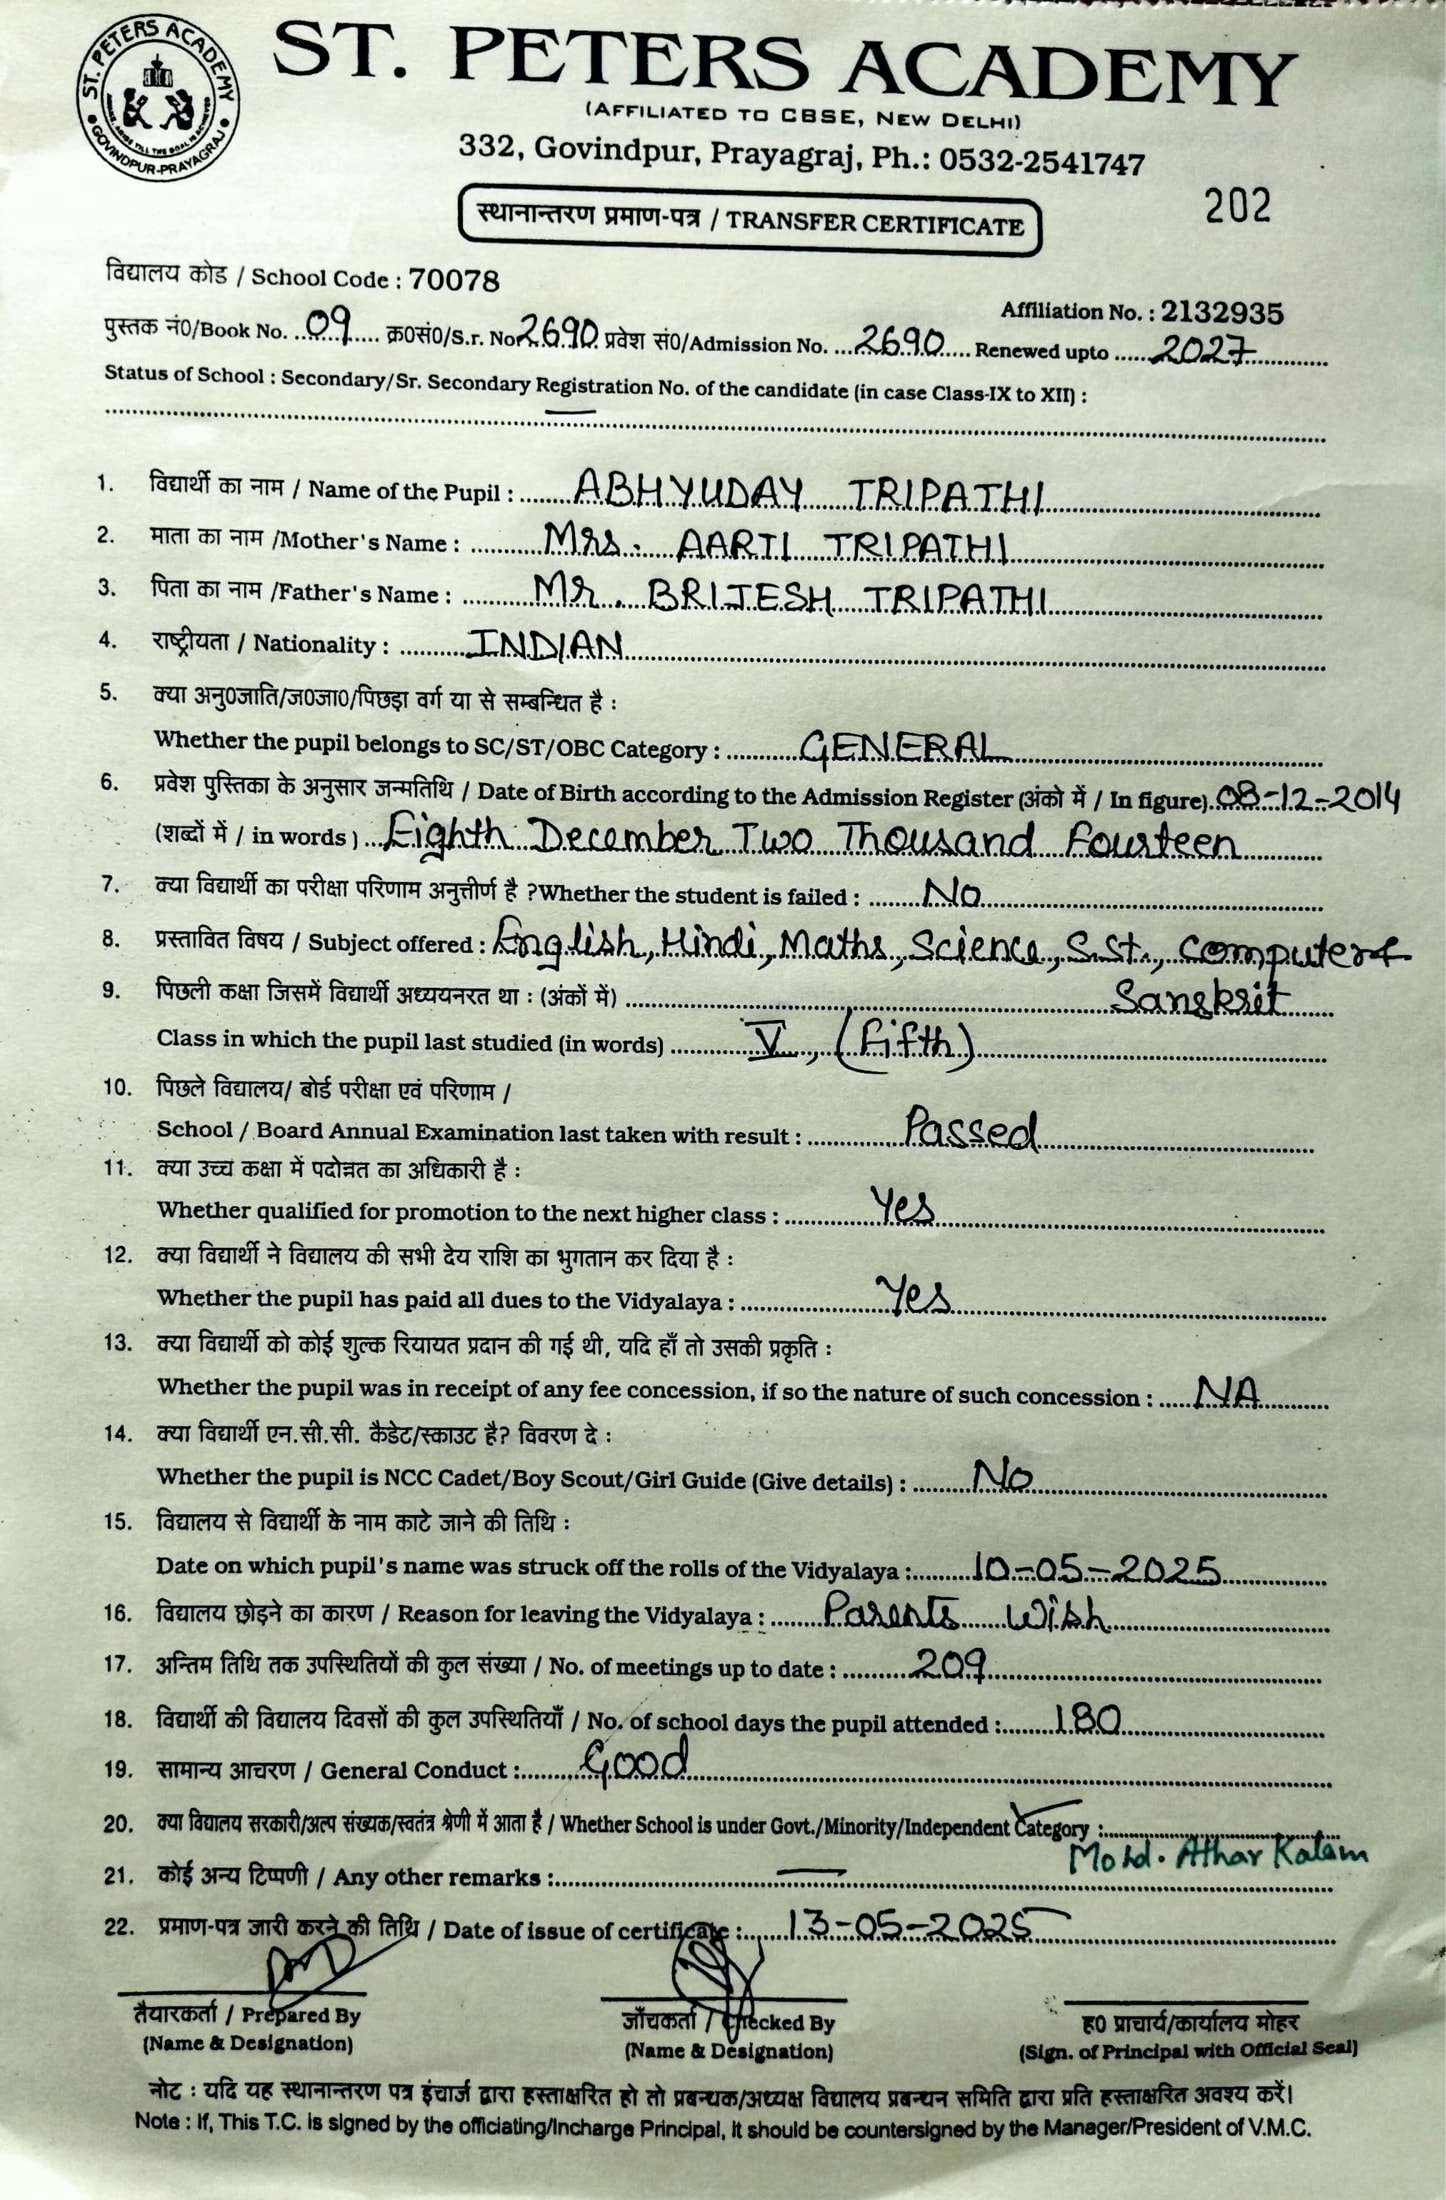 ST. PETERS ACADEMY
GOVINDPUR-PRAYAGRAJ
ST. PETERS ACADEMY
(AFFILIATED TO CBSE, NEW DELHI)
332, Govindpur, Prayagraj, Ph.: 0532-2541747
स्थानान्तरण प्रमाण-पत्र / TRANSFER CERTIFICATE
202
विद्यालय कोड / School Code : 70078
Affiliation No. : 2132935
पुस्तक नं0/Book No. 09 क्र0सं0/S.r. No 2690 प्रवेश सं0/Admission No. 2690 Renewed upto 2027
Status of School : Secondary/Sr. Secondary Registration No. of the candidate (in case Class-IX to XII) :
1. विद्यार्थी का नाम / Name of the Pupil : ABHYUDAY TRIPATHI
2. माता का नाम /Mother's Name : Mrs. AARTI TRIPATHI
3. पिता का नाम /Father's Name : Mr. BRIJESH TRIPATHI
4. राष्ट्रीयता / Nationality : INDIAN
5. क्या अनु0जाति/ज0जा0/पिछड़ा वर्ग या से सम्बन्धित है :
Whether the pupil belongs to SC/ST/OBC Category : GENERAL
6. प्रवेश पुस्तिका के अनुसार जन्मतिथि / Date of Birth according to the Admission Register (अंको में / In figure). 08-12-2014
(शब्दों में / in words ) Eighth December Two Thousand Fourteen
7. क्या विद्यार्थी का परीक्षा परिणाम अनुत्तीर्ण है ?Whether the student is failed : No
8. प्रस्तावित विषय / Subject offered : English, Hindi, Maths, Science, S.St., Computer &
Sanskrit
9. पिछली कक्षा जिसमें विद्यार्थी अध्ययनरत था : (अंकों में)
Class in which the pupil last studied (in words) V, (Fifth)
10. पिछले विद्यालय/ बोर्ड परीक्षा एवं परिणाम /
School / Board Annual Examination last taken with result : Passed
11. क्या उच्च कक्षा में पदोन्नत का अधिकारी है :
Whether qualified for promotion to the next higher class : Yes
12. क्या विद्यार्थी ने विद्यालय की सभी देय राशि का भुगतान कर दिया है :
Whether the pupil has paid all dues to the Vidyalaya : Yes
13. क्या विद्यार्थी को कोई शुल्क रियायत प्रदान की गई थी, यदि हाँ तो उसकी प्रकृति :
Whether the pupil was in receipt of any fee concession, if so the nature of such concession : NA
14. क्या विद्यार्थी एन.सी.सी. कैडेट/स्काउट है? विवरण दे :
Whether the pupil is NCC Cadet/Boy Scout/Girl Guide (Give details) : No
15. विद्यालय से विद्यार्थी के नाम काटे जाने की तिथि :
Date on which pupil's name was struck off the rolls of the Vidyalaya : 10-05-2025
16. विद्यालय छोड़ने का कारण / Reason for leaving the Vidyalaya : Parents Wish
17. अन्तिम तिथि तक उपस्थितियों की कुल संख्या / No. of meetings up to date : 209
18. विद्यार्थी की विद्यालय दिवसों की कुल उपस्थितियाँ / No. of school days the pupil attended : 180
19. सामान्य आचरण / General Conduct : Good
20. क्या विद्यालय सरकारी/अल्प संख्यक/स्वतंत्र श्रेणी में आता है / Whether School is under Govt./Minority/Independent Category :
Mohd. Athar Kalam
21. कोई अन्य टिप्पणी / Any other remarks :
22. प्रमाण-पत्र जारी करने की तिथि / Date of issue of certificate : 13-05-2025
तैयारकर्ता / Prepared By
(Name & Designation)
जाँचकर्ता / Checked By
(Name & Designation)
ह0 प्राचार्य/कार्यालय मोहर
(Sign. of Principal with Official Seal)
नोट : यदि यह स्थानान्तरण पत्र इंचार्ज द्वारा हस्ताक्षरित हो तो प्रबन्धक/अध्यक्ष विद्यालय प्रबन्धन समिति द्वारा प्रति हस्ताक्षरित अवश्य करें।
Note : If, This T.C. is signed by the officiating/Incharge Principal, it should be countersigned by the Manager/President of V.M.C.